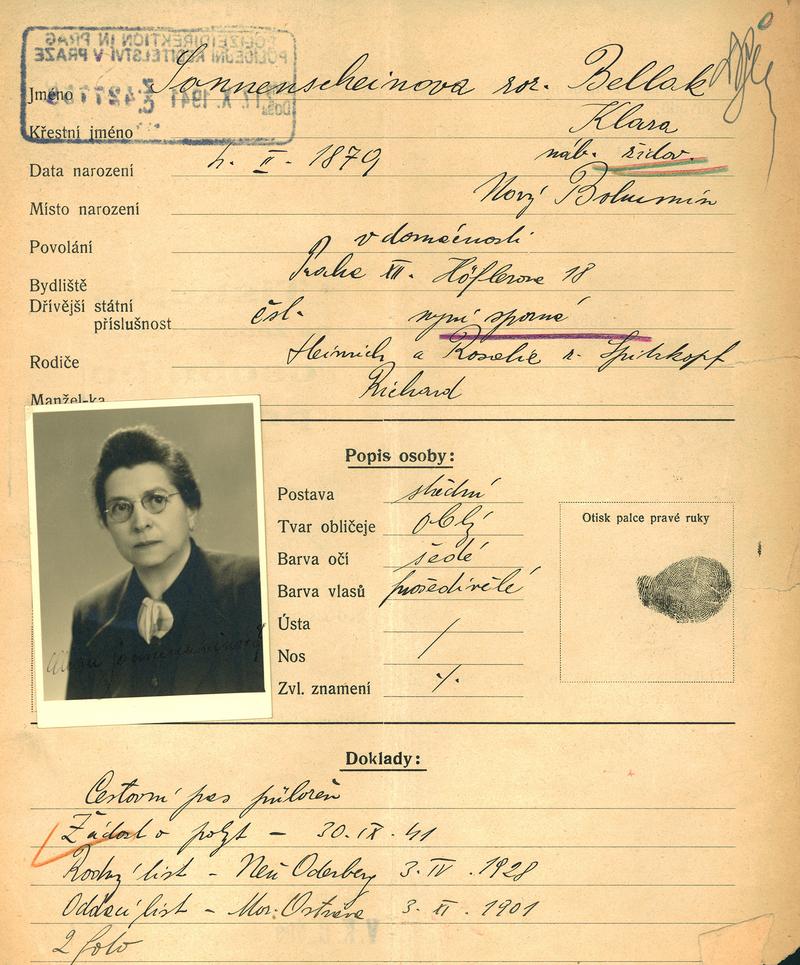 POLIZEIDIREKTION IN PRAG
POLICEJNÍ ŘEDITELSTVÍ V PRAZE
Došlo 17. X. 1941
Jméno Sonnenscheinova roz. Bellak
Křestní jméno Klara
Data narození 4. II. 1879 náb. židov.
Místo narození Nový Bohumín
Povolání v domácnosti
Bydliště Praha XII. Höflerova 18
Dřívější státní
příslušnost čsl. nyní sporné
Rodiče Heinrich a Rosalie r. Spitzkopf
Manžel-ka Richard
Popis osoby:
Postava střední
Tvar obličeje oblý
Barva očí šedé
Barva vlasů prošedivělé
Ústa /
Nos
Zvl. znamení ·/·
Otisk palce pravé ruky
Doklady:
Cestovní pas půlořen
Žádost o pobyt – 30. IX. 41
Rodný list – Neu Oderberg 3. IV. 1928
Oddací list – Mor. Ostrava 3. II. 1901
2 foto